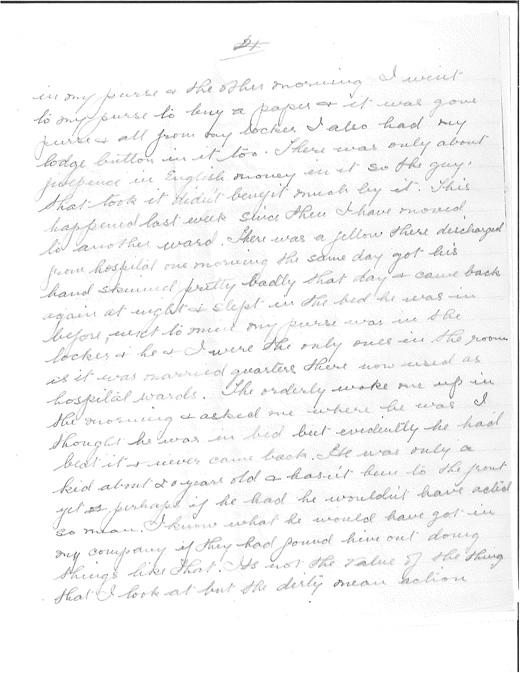 2/
in my purse & the other morning I went
to my purse to buy a paper & it was gone
purse & all from my locker I also had my
lodge button in it too. There was only about
fivepence in English money in it so the guy.
that took it didn't benefit much by it. This
happened last week since then I have moved
to another ward. There was a fellow there discharged
from hospital one morning the same day got his
hand skinned pretty badly that day & came back
again at night & slept in the bed he was in
before, next to mine my purse was in the
locker & he & I were the only ones in the room
is it was married quarters there now used as
hospital wards. The orderly woke me up in
the morning & asked me where he was I
thought he was in bed but evidently he had
beat it & never came back. He was only a
kid about 20 years old & hasn't been to the front
yet & perhaps if he had he wouldn't have acted
so mean. I know what he would have got in
my company if they had found him out doing
things like that. Its not the value of the thing
that I look at but the dirty mean action